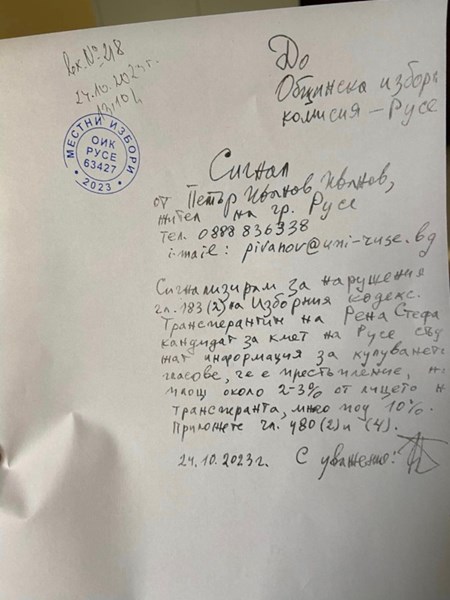 вх.№ 218
24.10.2023г.
13,10ч
МЕСТНИ ИЗБОРИ
ОИК
РУСЕ
63427
• 2023 •
До
Общинска избира
комисия – Русе
Сигнал
от Петър Иванов Иванов,
жител на гр. Русе
тел. 0888 836338
e-mail: pivanov@uni-ruse.bg
Сигнализирам за нарушения
чл. 183 (2) на Изборния кодекс.
Транспарантин на Рена Стефа
кандидат за кмет на Русе съд
жат информация за купуванет
гласове, че е престъпление, н
площ около 2-3% от лицето н
транспаранта, много под 10%.
Приложете чл. 480 (2) и (4).
24.10.2023г. С уважение: